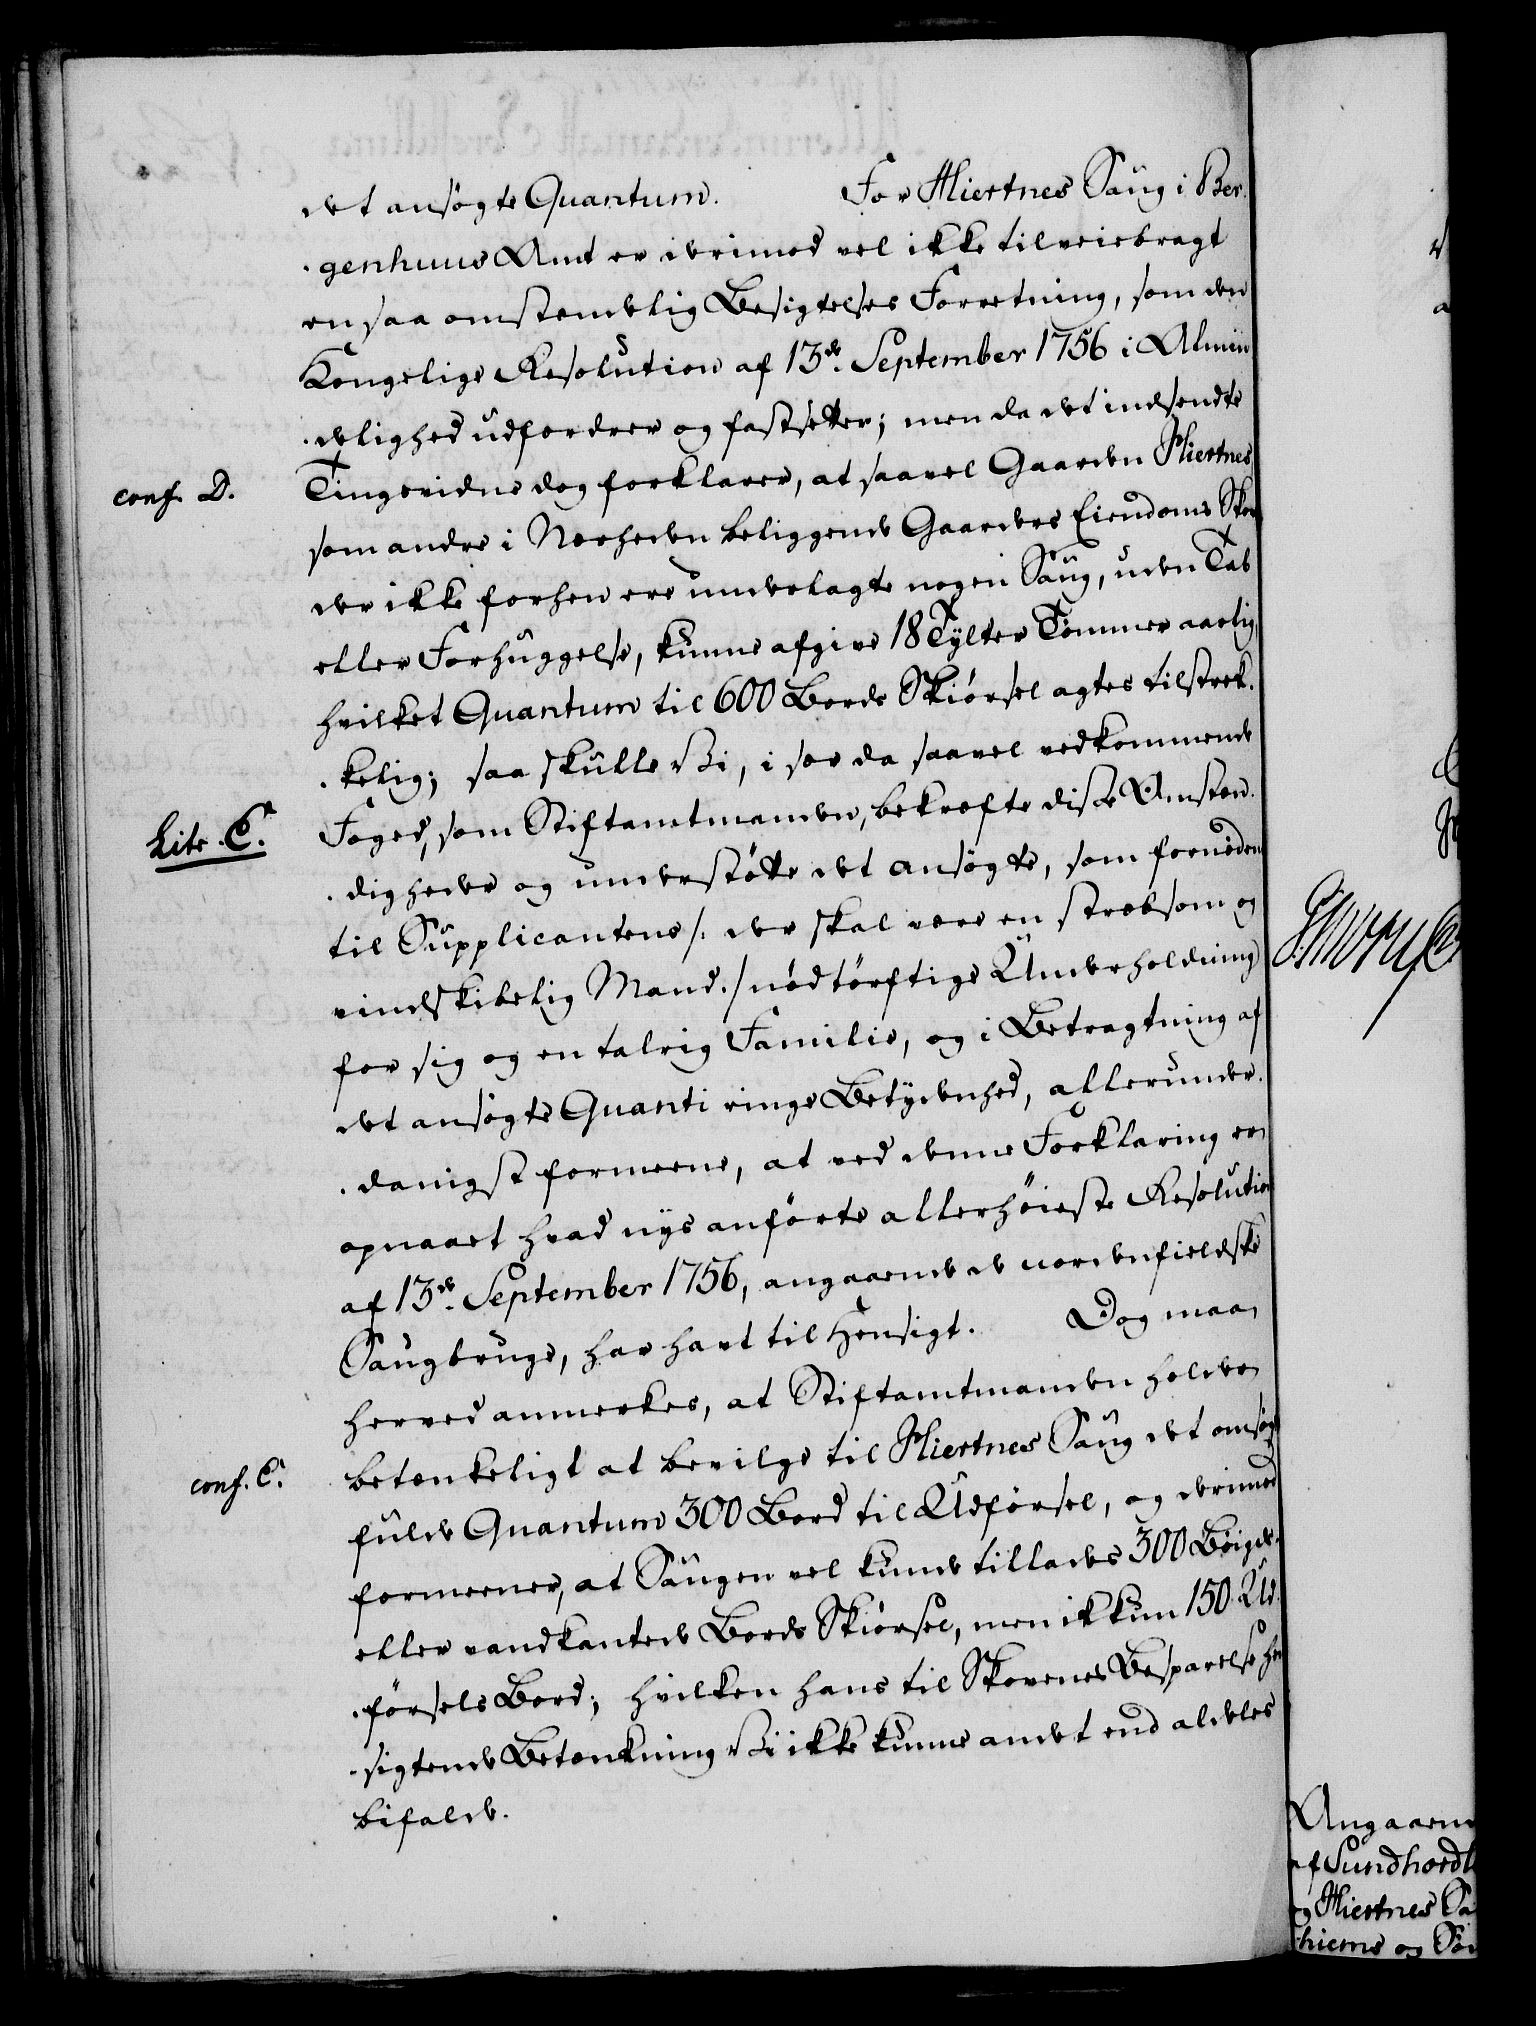 det ansøgte Quantum. For Hiertnes Saug i Ber-
-genhuus Amt er derimod vel ikke tilveiebragt
en saa omstændelig Besigtelses Forretning, som den
Kongelige Resolution af 13de September 1756 i Almin-
-delighed udfordrer og fastsetter; men da det indsendte
conf. D. Tingsvidne dog forklarer, at saavel Gaarden Hiertnes
som andre i Nærheden beliggende Gaarders Eiendoms Skov
der ikke forhen ere underlagte nogen Saug, uden Tab
eller Forhuggelse, kunne afgive 18 Tylter Tømmer aarlig
hvilket Quantum til 600 Bords Skiørsel agtes tilstrek-
-kelig; saa skulle Vi, i sær da saavel vedkommende
Litr. C. Foged, som Stiftamtmanden, bekræfte disse Omstæn-
-digheder og understøtte det ansøgte, som fornøden
til Supplicantens /: der skal være en stræbsom og
vindskibelig Mand :/ nødtørftige Underholdning
for sig og en talrig Familie, og i Betragtning af
det ansøgte Quanti ringe Betydenhed, allerunder-
-danigst formeene, at ved denne Forklaring er
opnaaet hvad nys anførte allerhøieste Resolution
af 13de September 1756, angaaende de nordenfieldske
Saugbruge, har havt til Hensigt. Dog maa
herved anmerkes, at Stiftamtmanden holder
conf. C. betenkeligt at bevilge til Hiertnes Saug det ansøgte
fulde Quantum 300 Bord til Udførsel, og derimod
formeener, at Saugen vel kunde tillades 300 Bøigde-
eller vandkantede Bords Skiørsel, men ikkun 150 Ud-
-førsels Bord; hvilken hans til Skovenes Besparelse hen-
-sigtende Betænkning Vi ikke kunne andet end aldeles
bifalde.
Angaaen
af Sundhordl
og Hiertnes Sa
hiems og Sø